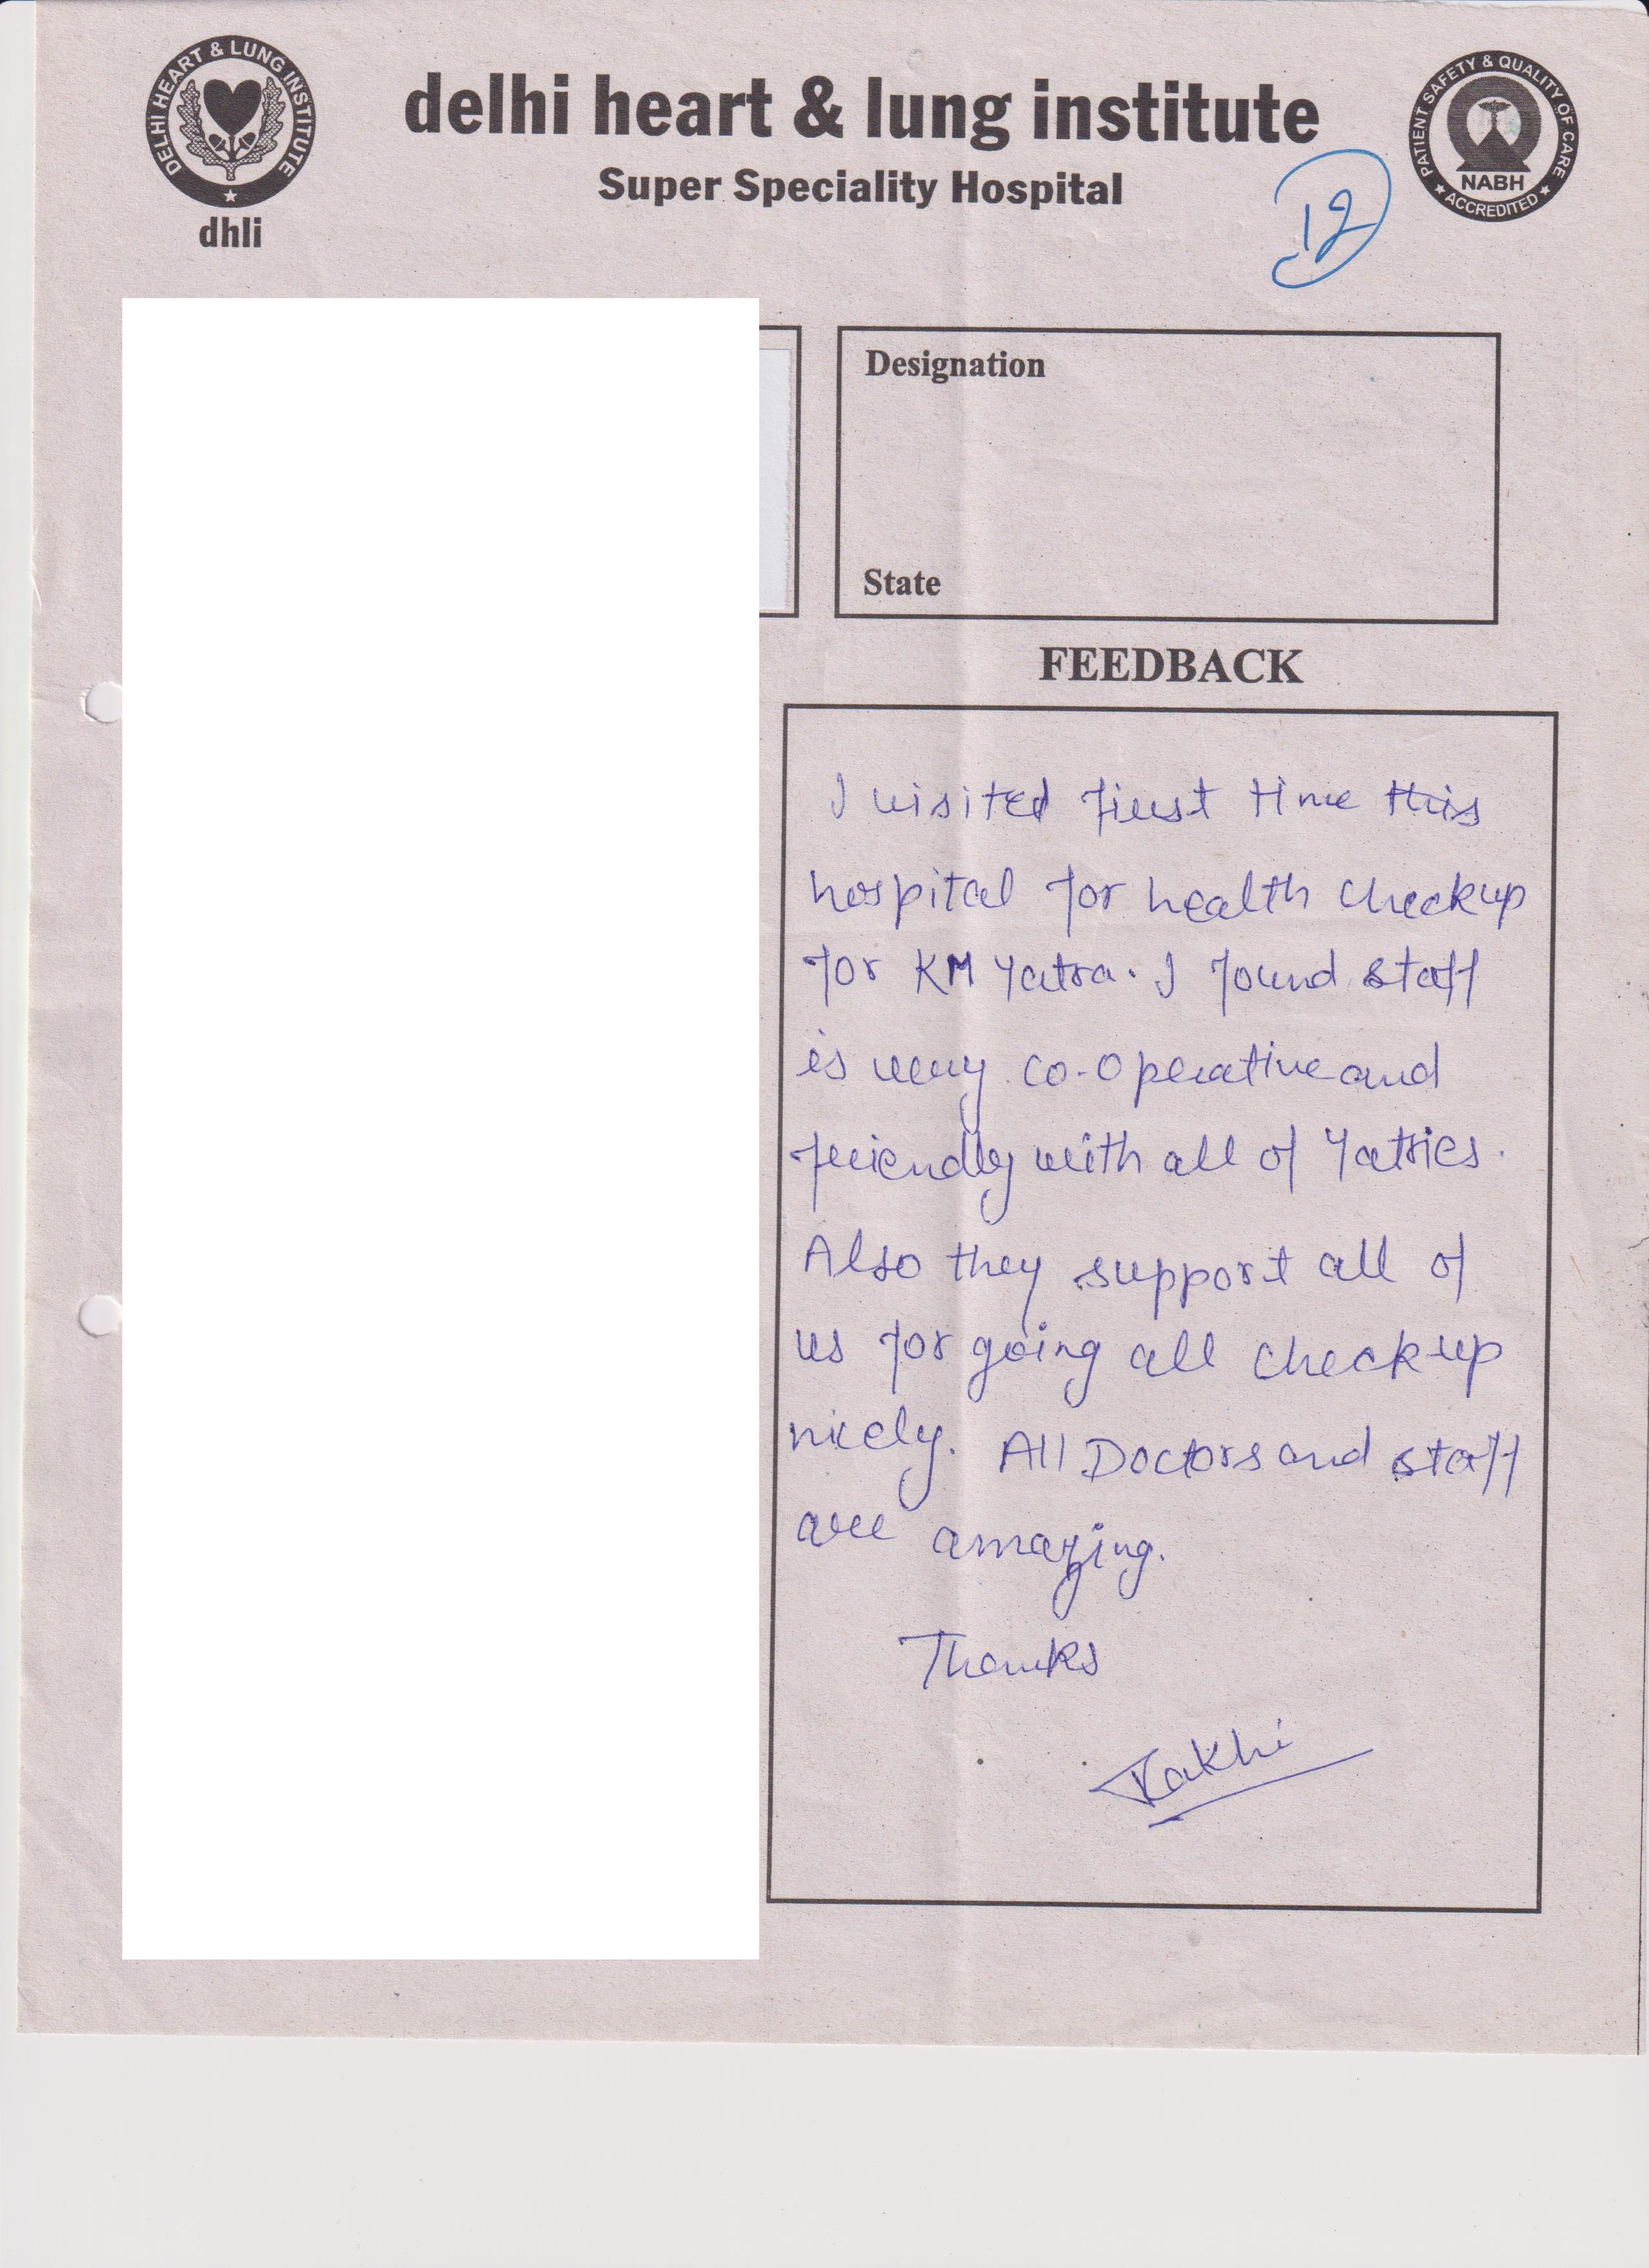 DELHI HEART & LUNG INSTITUTE
dhli
delhi heart & lung institute
Super Speciality Hospital
PATIENT SAFETY & QUALITY OF CARE
NABH
ACCREDITED
12
Designation
State
FEEDBACK
I visited first time this
hospital for health checkup
for KM Yatra. I found staff
is very co-operative and
friendly with all of Yatries.
Also they support all of
us for going all checkup
nicely. All Doctors and staff
are amazing.
Thanks
Rakhi